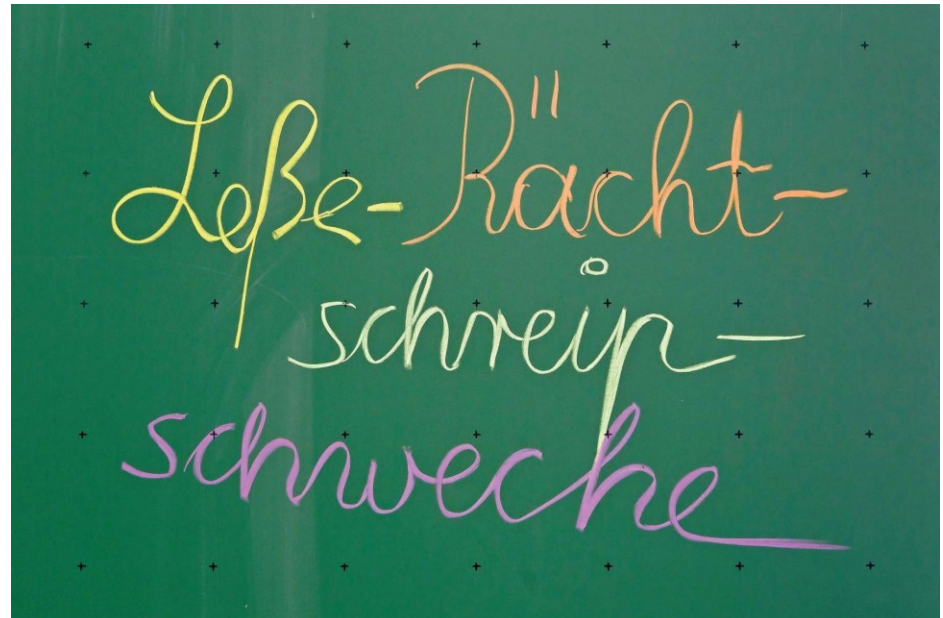 Leße-Rächt-
schreip-
schweche